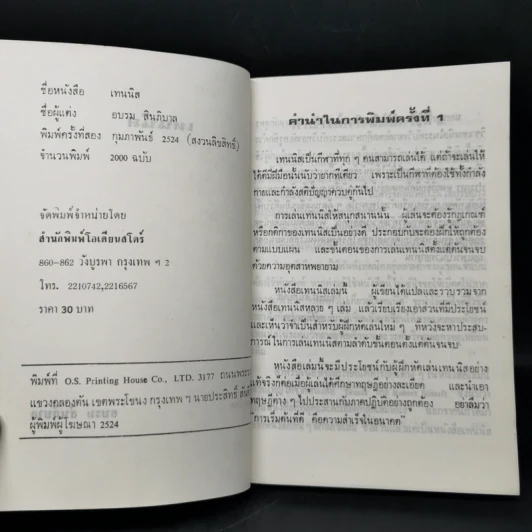 ชื่อหนังสือ เทนนิส
ชื่อผู้แต่ง อบรม สินภิบาล
พิมพ์ครั้งที่สอง กุมภาพันธ์ 2524 (สงวนลิขสิทธิ์)
จำนวนพิมพ์ 2000 ฉบับ
จัดพิมพ์จำหน่ายโดย
สำนักพิมพ์โอเดียนสโตร์
860-862 วังบูรพา กรุงเทพ ฯ 2
โทร. 2210742,2216567
ราคา 30 บาท
พิมพ์ที่ O.S. Printing House Co., LTD. 3177 ถนนพระราม
แขวงคลองตัน เขตพระโขนง กรุงเทพฯ นายประสิทธิ์
ผู้พิมพ์ผู้โฆษณา 2524
คำนำในการพิมพ์ครั้งที่ 1
เทนนิสเป็นกีฬาที่ทุก ๆ คนสามารถเล่นได้ แต่ถ้าจะเล่นให้
ได้ดีมีฝีมือนั้นนับว่ายากทีเดียว เพราะเป็นกีฬาที่ต้องใช้ทั้งกำลัง
กายและกำลังสติปัญญาควบคู่กันไป
การเล่นเทนนิสให้สนุกสนานนั้น ผู้เล่นจะต้องรู้กฎเกณฑ์
หรือกติกาของเทนนิสเป็นอย่างดี ประกอบกับจะต้องฝึกให้ถูกต้อง
ตามแบบแผน และขั้นตอนของการเล่นเทนนิสตั้งแต่ต้นจนจบ
ด้วยความอุตสาหพยายาม
หนังสือเทนนิสเล่มนี้ ผู้เขียนได้แปลและรวบรวมจาก
หนังสือเทนนิสหลาย ๆ เล่ม แล้วเรียบเรียงเอาส่วนที่มีประโยชน์
และเห็นว่าจำเป็นสำหรับผู้ฝึกหัดเล่นใหม่ ๆ ที่หวังจะหาประสบ-
การณ์ ในการเล่นเทนนิสตามลำดับขั้นตอนตั้งแต่ต้นจนจบ
หนังสือเล่มนี้จะมีประโยชน์กับผู้ฝึกหัดเล่นเทนนิสอย่าง
แท้จริงก็ต่อเมื่อผู้เล่นได้ศึกษาทฤษฎีอย่างละเอียด และนำเอา
ทฤษฎีต่าง ๆ ไปประสานกับภาคปฏิบัติอย่างถูกต้อง อย่าลืมว่า
"การเริ่มต้นที่ดี คือความสำเร็จในอนาคต"